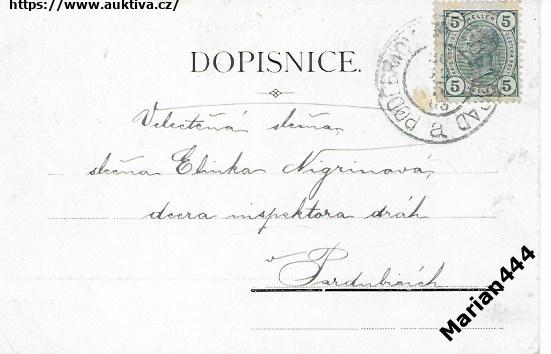 https://www.auktiva.cz/
DOPISNICE.
5 HELLER 5
5 5
PODĚBRADY
a
Velectěná slečna,
slečna Elinka Nigrinová,
dcera inspektora dráh
v Pardubicích
Marian444